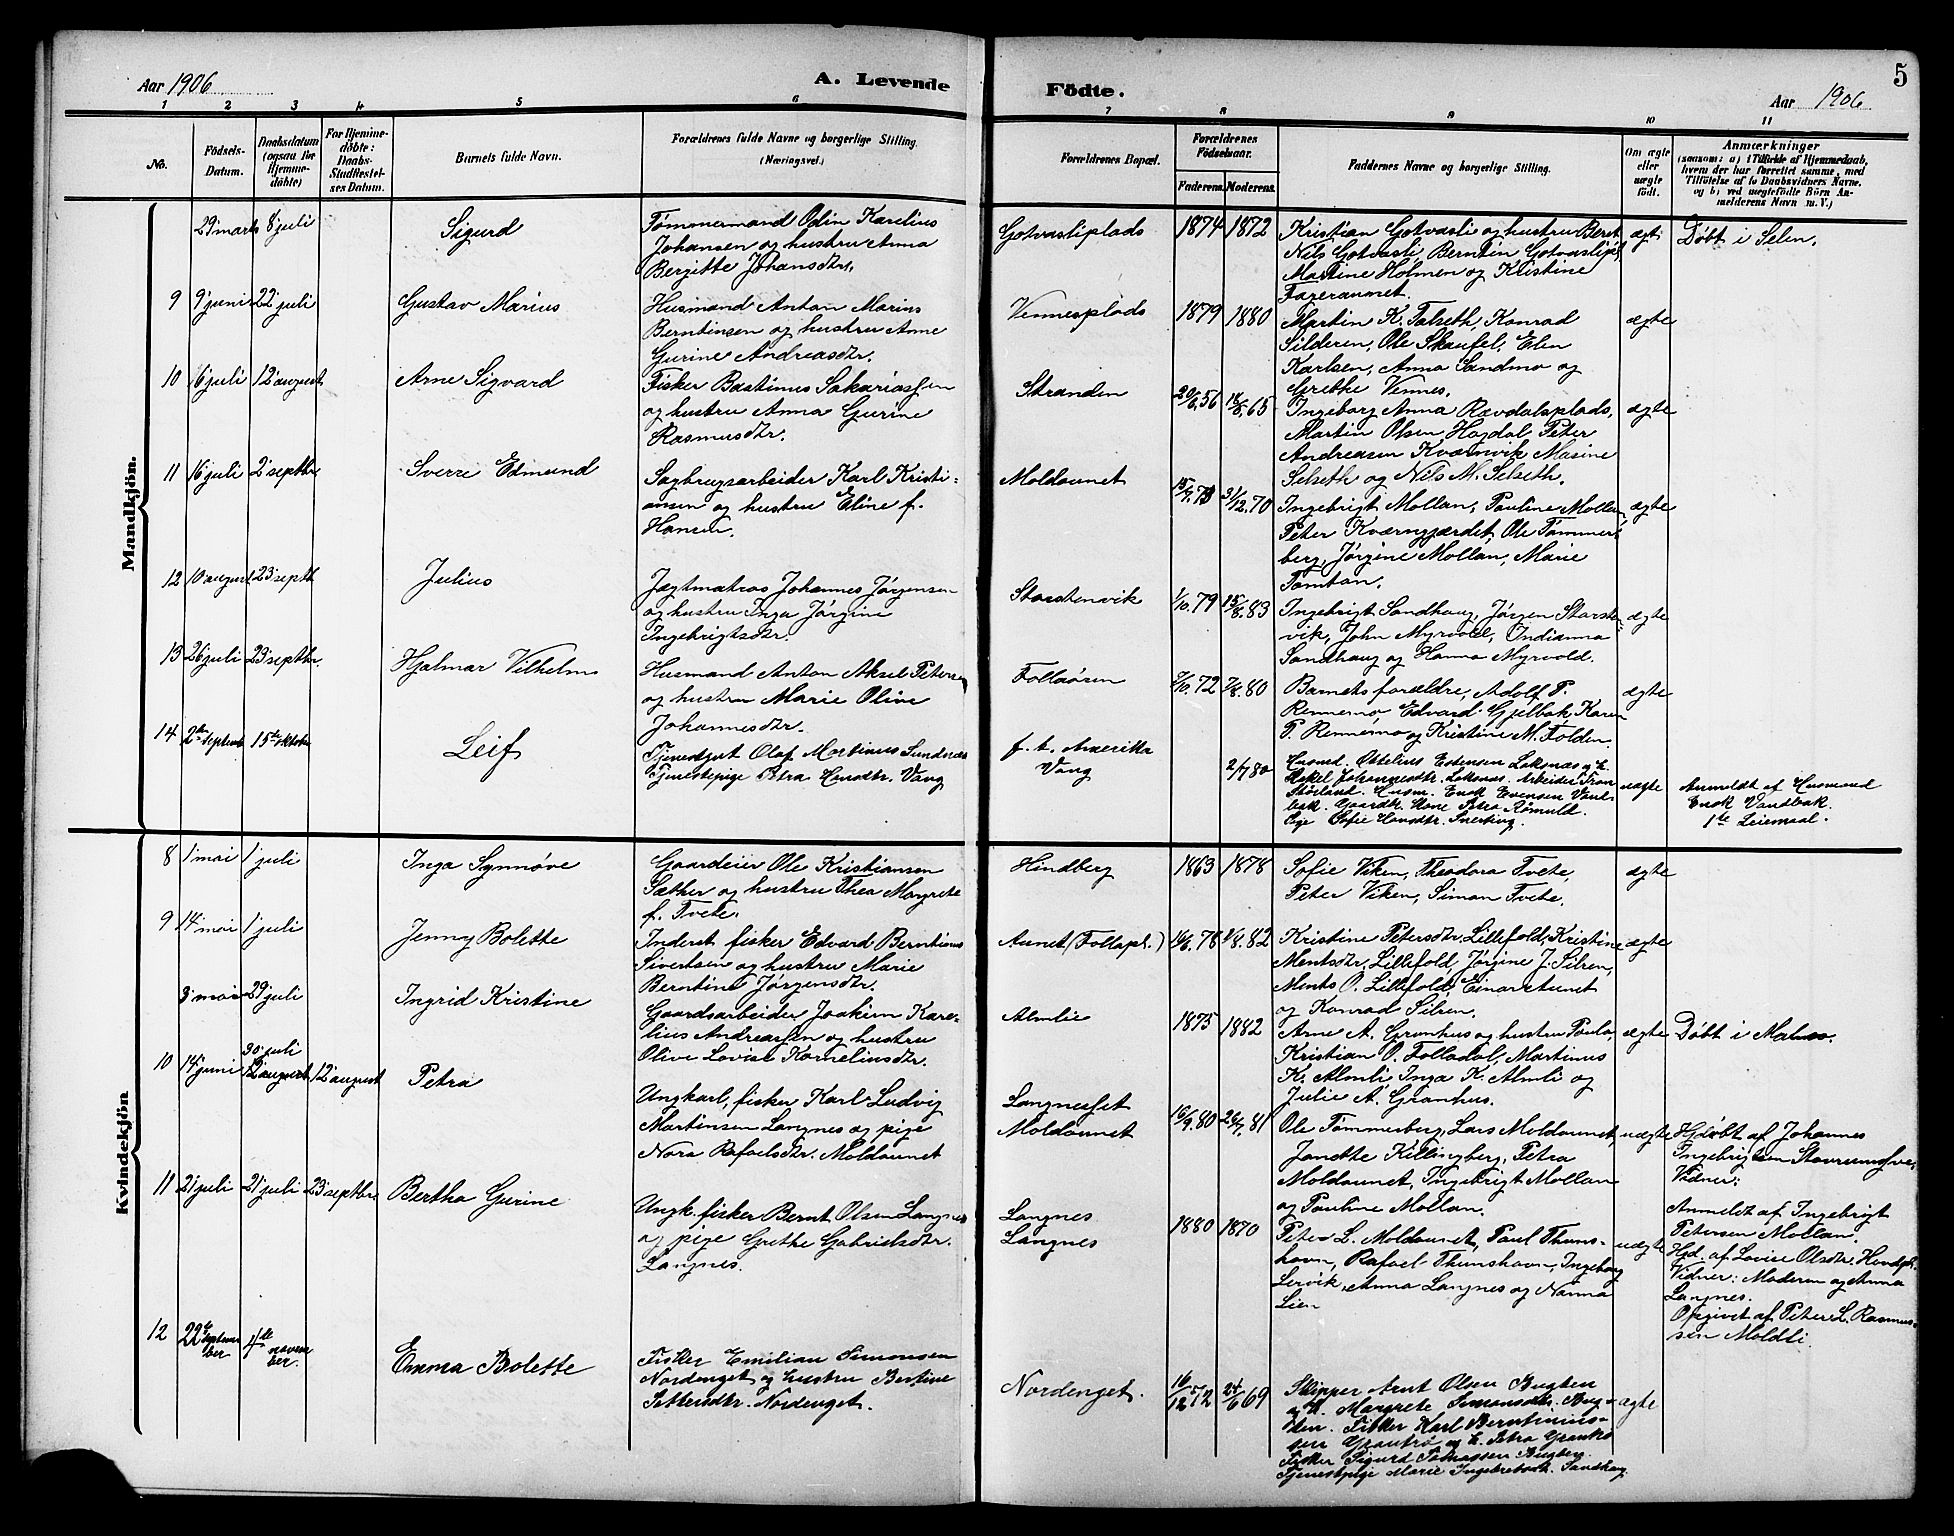 Aar 1906
A. Levende
Födte.
Aar 1906
5
1 2 3 4 5 6 7 8 9 10 11
No.
Födsels-Datum.
Daabsdatum (ogsaa for Hjemme-döbte)
For Hjemme-döbte: Daabs-Stadfæstel-ses Datum.
Barnets fulde Navn.
Forældrenes fulde Navne og borgerlige Stilling. (Næringsvei.)
Forældrenes Bopæl.
Forældrenes Födselsaar.
Faderens. Moderens.
Faddernes Navne og borgerlige Stilling.
Om ægte eller uægte födt.
Anmærkninger
(saasom: a) i Tilfælde af Hjemmedaab, hvem der har forrettet samme, med Tilföielse af to Daabsvidners Navne. og b) ved uægtefödte Börn An-melderens Navn m. V.)
Mandkjön.
29 marts 8 juli
Sigurd
Tømmermand Odin Karelius
Johansen og hustru Anna
Bergitte Johansdtr.
Gotvasliplads
1874 1872
Kristian Gotvasli og hustru Beret
Nils Gotvasli, Berntin Gotvaslipl,
Martine Holmen og Kristine
Fageraunet.
ægt
Døbt i Selen.
9 9 juni 22 juli
Gustav Marius
Husmand Anton Marius
Berntinsen og hustru Anne
Gurine Andreasdtr.
Vennesplads
1879 1880
Martin K. Falseth, Konrad
Silderen, Ole Skaufel, Elen
Karlsen, Anna Sandmo og
Grethe Vennes.
ægte
10 16 juli 12 august
Arne Sigvard
Fisker Bastinus Sakariassen
og hustru Anna Gurine
Rasmusdtr.
Stranden
20/6.56 18/8.65
Ingeborg Anna Rævdalsplads,
Martin Olsen Hogdal Peter
Andreasen Kværnvik Masine
Selseth og Nils M. Selseth.
ægte
11 16 juli 2 septbr
Sverre Edmund
Sagbrugsarbeider Karl Kristi-
ansen og hustru Eline f.
Hansen.
Moldaunet
15/7.73 31/12.70
Ingebrigt Mollan, Pauline Mollan,
Peter Kværngjærdet, Ole Tømmer-
berg, Jørgine Mollan, Marie
Tømtan.
ægte
12 10 august 23 septbr
Julius
Jægtmatros Johannes Jørgensen
og hustru Inga Jørgine
Ingebrigtsdtr.
Storstenvik
1/10.79 15/8.83
Ingebrigt Sandhaug, Jørgen Storste-
vik, John Myrvold, Ondianna
Sandhaug og Hanna Myrvold.
ægte
13 26 juli 23 septbr.
Hjalmar Vilhelm
Husmand Anton Aksel Petersen
og hustru Marie Olive
Johannesdtr.
Follaøren
2/10.72 7/8.80
Barnets forældre, Adolf P.
Rennemo Edvard Gjelbak, Karen
P. Rennemo og Kristine M. Folden.
ægte
14 2den septemb 15de oktober
Leif
Tjenestgut Olaf Martinus Sundnæs
Tjenestepige Petra Hansdtr. Vang
f. t. Amerika
Vang
2/7 80
Husmd. Ottelius Estensen Løksnæs og h.
Hakel Johannesdtr. Løksnæs. Arbeider Fran
Størland. Husm. Enok Evensen Vand-
bak. Gaardbr. Kone Petra Rømuld.
Pige Sofie Hansdtr. Snerting.
uægte
Anmeldt af Husmand
Enok Vandbak.
1te Leiermaal.
Kvindekjön
8 1 mai 1 juli
Inga Synnøve
Gaardeier Ole Kristiansen
Sæther og hustru Thea Margrete
f. Tvete.
Hindberg
1863 1878
Sofie Viken, Theodora Tvete,
Peter Viken, Simon Tvete.
ægte
9 14 mai 1 juli
Jenny Bolette
Inderst, fisker Edvard Berntinus
Sivertsen og hustru Marie
Berntine Jørgensdtr.
Aunet (Follapl.)
14/6.78 1/8.82
Kristine Petersdtr. Lillefold, Kristine
Mentsdtr. Lillefold, Jørgine J. Silren,
Ments O. Lillefold, Einar Aunet
og Konrad Silren.
ægte
3 mai 29 juli
Ingrid Kristine
Gaardsarbeider Joakim Kare-
lius Andreassen og hustru
Olive Lovise Kornelíusdtr.
Almlie
1875 1882
Arne A. Granhus og hustru Paula,
Kristian O. Folladal, Martinus
K. Almli Inga K. Almli og
Julie A. Granhus.
ægte
Døbt i Malmo.
10 14 juni 30 juli 12 august 12 august
Petra
Ungkarl, fisker Karl Ludvig
Martinsen Langnes og pige
Nora Rafaelsdtr. Moldaunet
Langneset
Moldaunet
16/9.80 26/7.81
Ole Tømmerberg, Lars Moldaunet,
Janette Killingberg, Petra
Moldaunet, Ingebrigt Mollan
og Pauline Mollan.
uægte
Hjdøbt af Johannes
Ingebrigtsen
Vidner:
Anmeldt af Ingebrigt
Petersen Mollan.
11 21 juli 21 juli 23 septbr
Bertha Gurine
Ungk. fisker Bernt Olsen Langnes
og pige Grethe Gabrielsdtr.
Langnes.
Langnes
Langnes
1880 1870
Peter L. Moldaunet, Paul Thuns-
havn, Rafael Thunshavn, Ingeborg
Lervik, Anna Langnes og Nanna
Lien
uægte
Hjd. af Lovise Olsdtr.
Vidner: Moderen og Anna
Langnes.
Opgivet af Peter L. Rasmus-
sen Moldli.
12 22de september 4de november
Emma Bolette
Fisker Emilian Simonsen
Nordenget og hustru Bertine
Pettersdtr. Nordenget.
Nordenget.
16/12 72 24/6 69
Skipper Arnt Olsen Bugten
og h. Margrete Simonsdtr. Bug-
ten. Fisker Karl Berntinus-
sen Granfrø og h. Petra
Fisker Sigurd Tomassen
Tjenestepige Marie Sandhaug.
ægte